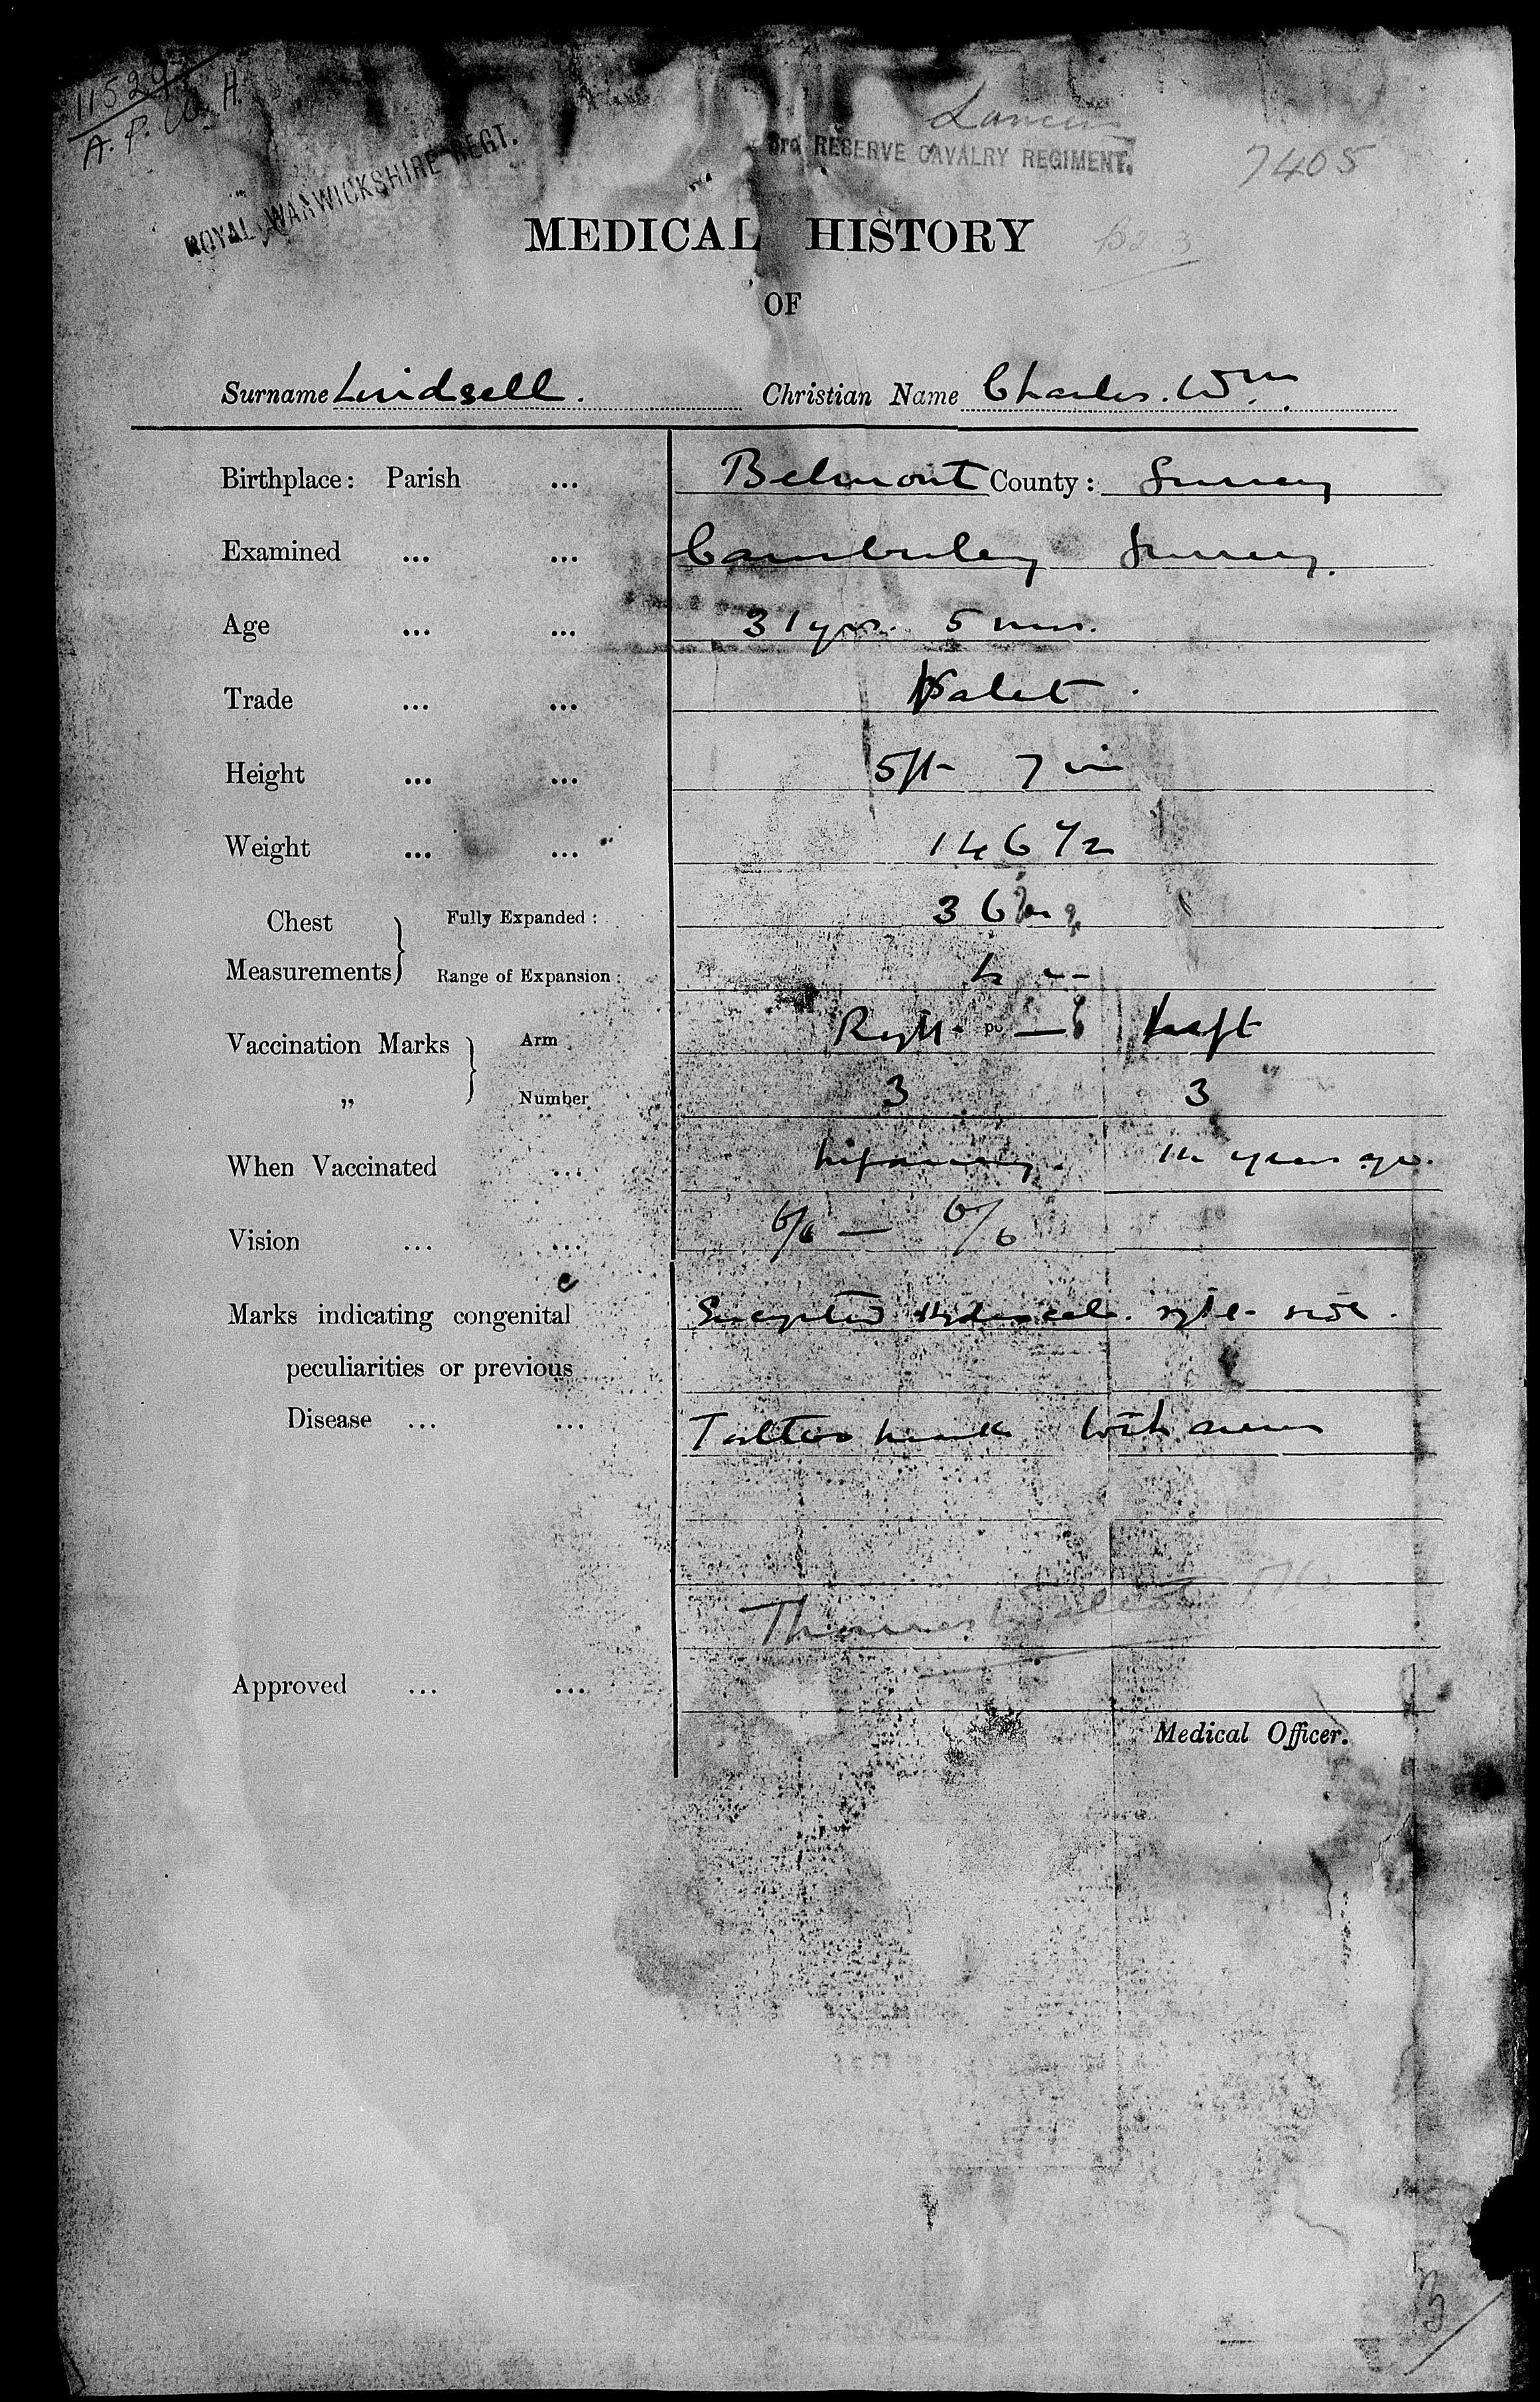 11529
A. P. W. H.
ROYAL WARWICKSHIRE REGT.
Lancers
3rd RESERVE CAVALRY REGIMENT.
7405
MEDICAL HISTORY
OF
Surname Lindsell. Christian Name Charles. Wm.
Birthplace: Parish ... Belmont County: Surrey
Examined ... ... Camberley Surrey.
Age ... ... 31 yrs. 5 mos.
Trade ... ... Valet.
Height ... ... 5 ft 7 in
Weight ... ... 146 1/2
Chest Fully Expanded: 36
Measurements Range of Expansion: 4
Vaccination Marks Arm Right Left
" Number 3 3
When Vaccinated ... Infancy. 14 years ago.
Vision ... ... 6/6 — 6/6
Marks indicating congenital Encysted Hydrocele. right side.
peculiarities or previous
Disease ... ... Tattoo marks both arms
Thomas
Approved ... ...
Medical Officer.
3